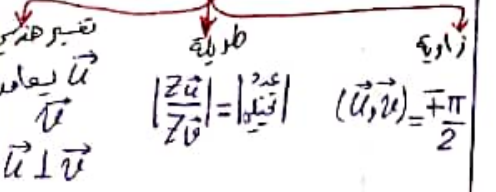 زاوية
(u⃗,v⃗) = ∓π/2
طويلة
|Zu⃗/Zv⃗| = |عدد|
تفسير هندسي
u⃗ يعامد
v⃗
u⃗ ⊥ v⃗